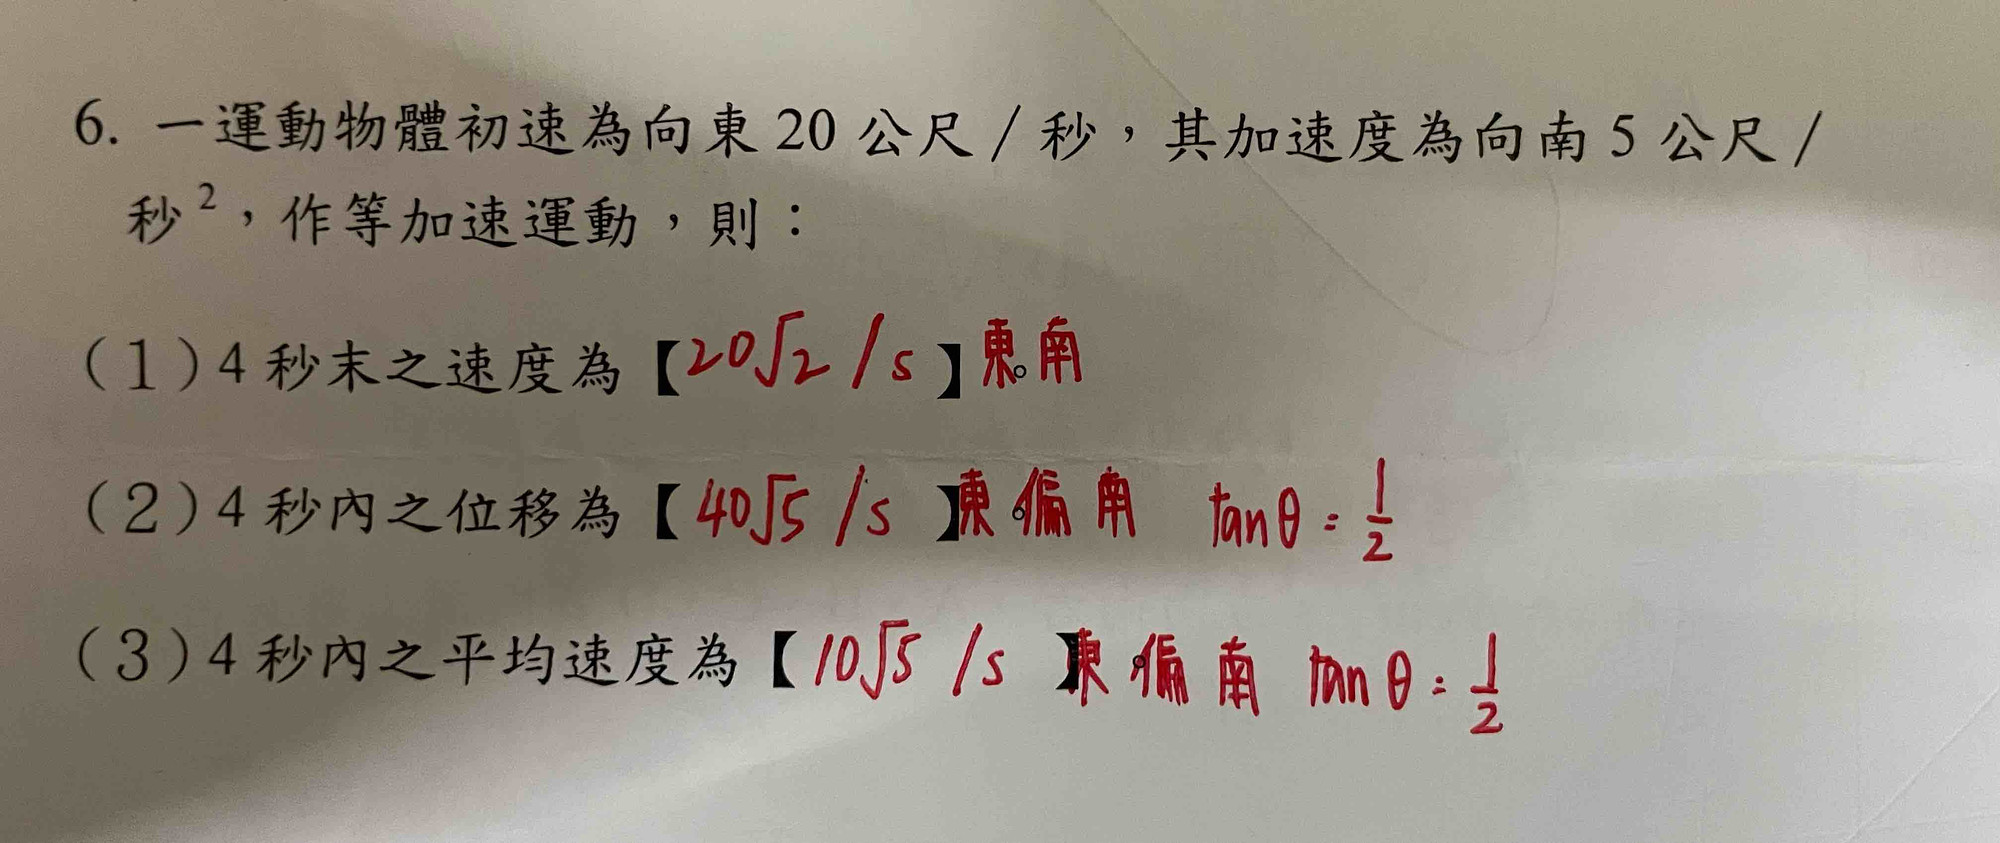 6. 一運動物體初速為向東 20 公尺/秒,其加速度為向南 5 公尺/
秒²,作等加速運動,則:
(1)4 秒末之速度為【20√2 /s】東南。
(2)4 秒內之位移為【40√5 /s】東偏南。 tanθ = 1/2
(3)4 秒內之平均速度為【10√5 /s】東偏南。 tanθ = 1/2